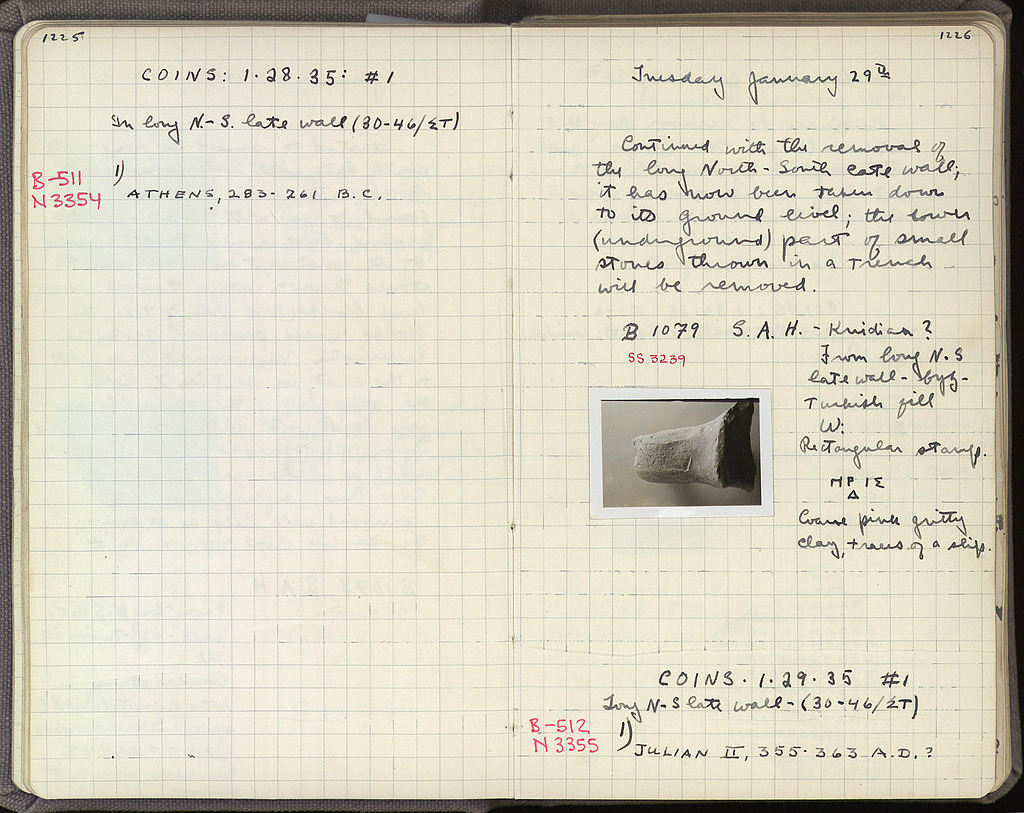 1225
COINS: 1·28·35: #1
In long N.-S. late wall (30-46/ΣΤ)
B-511
N3354
1)
ATHENS, 283-261 B.C.
1226
Tuesday January 29th
Continued with the removal of
the long North-South late wall;
it has now been taken down
to its ground level; the lower
(underground) part of small
stones thrown in a trench
will be removed.
B 1079 S.A.H. - Knidian?
SS 3239
From long N-S
late wall - byz-
Turkish fill
W:
Rectangular stamp.
ΗΡ ΙΣ
Δ
Coarse pink gritty
clay, traces of a slip.
COINS· 1·29·35 #1
Long N-S late wall - (30-46/ΣΤ)
B-512
N3355
1)
JULIAN II, 355-363 A.D.?